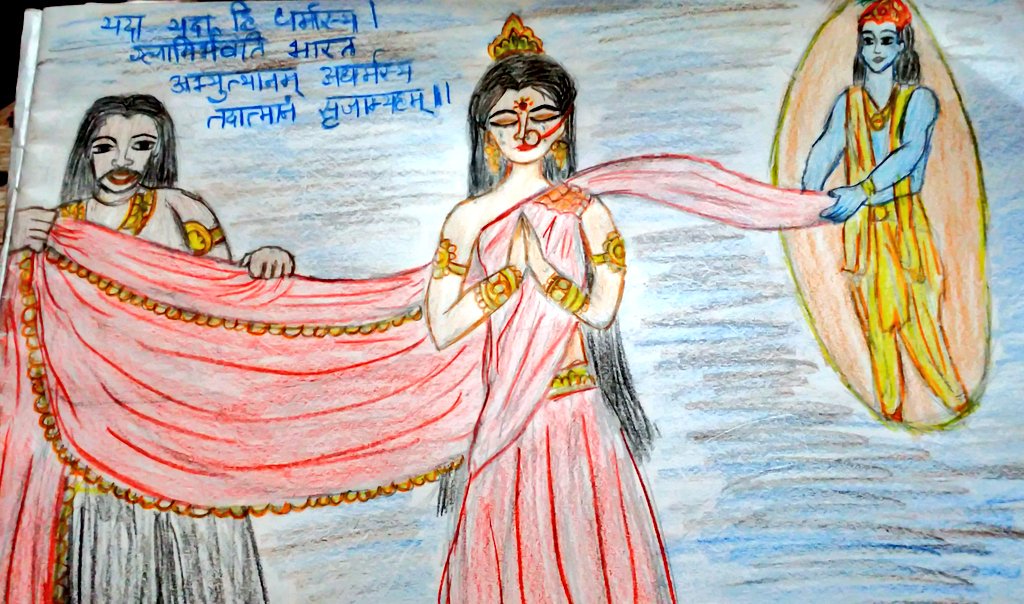 यदा यदा हि धर्मास्य।
ग्लानिर्भवति भारत
अभ्युत्थानम् अधर्मस्य
तदात्मानं सृजाम्यहम्॥